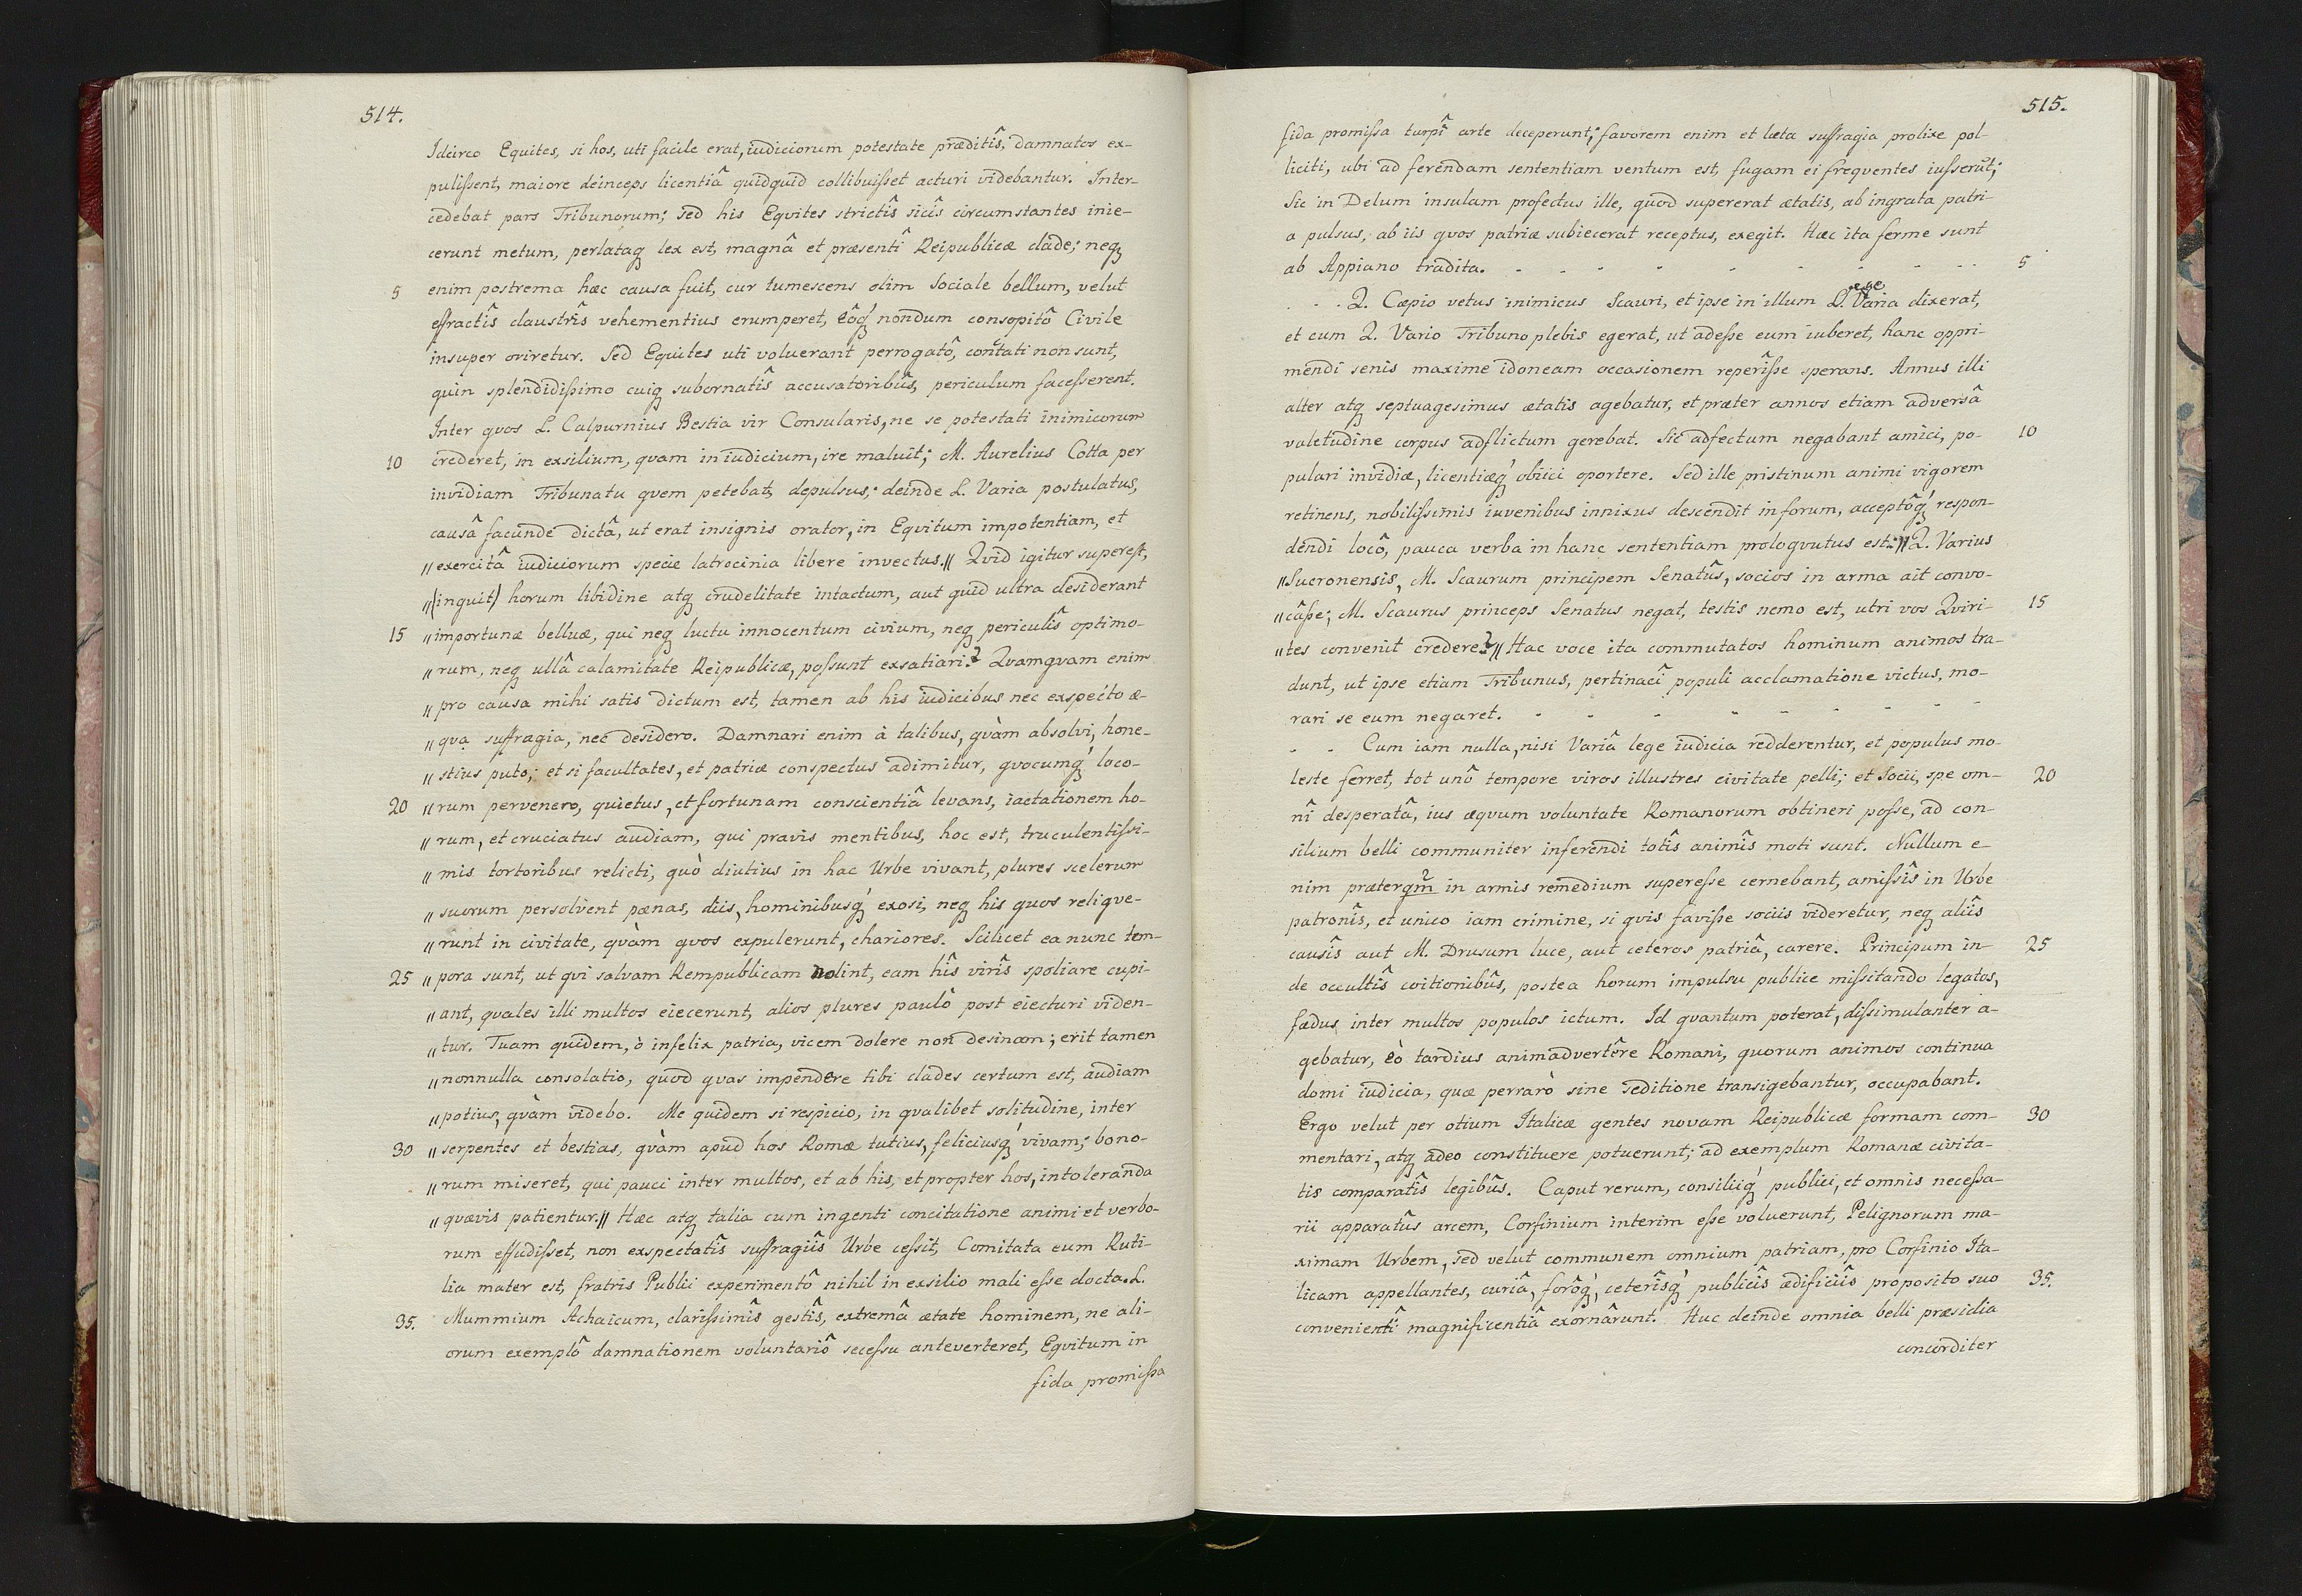 514.
Idcirco Equites, si hos, uti facile erat, iudiciorum potestate præditîs, damnatos ex-
pulissent, maiore deinceps licentiâ quidquid collibuisset acturi videbantur. Inter-
cedebat pars Tribunorum; sed his Equites strictîs sicîs circumstantes inie-
cerunt metum, perlataq́ lex est, magnâ et præsentî Reipublicæ clade; neq́
5 enim postrema hæc causa fuit, cur tumescens olim Sociale bellum, velut
effractîs claustrîs vehementius erumperet, eôq́ nondum consopitô Civile
insuper oriretur. Sed Equites uti voluerant perrogatô, contati non sunt,
quin splendidissimo cuiq́ subornatîs accusatoribûs, periculum facesserent.
Inter quos L. Calpurnius Bestia vir Consularis, ne se potestati inimicorum
10 crederet, in exsilium, quam in iudicium, ire maluit; M. Aurelius Cotta per
invidiam Tribunatu quem petebat, depulsus; deinde L. Varia postulatus,
causâ facunde dictâ, ut erat insignis orator, in Equitum impotentiam, et
〃exercitâ iudiciorum specie latrocinia libere invectus.〃 Quid igitur superest,
〃(inquit) horum libidine atq́ crudelitate intactum, aut quid ultra desiderant
15 〃importunæ belluæ, qui neq́ luctu innocentum civium, neq́ periculîs optimo-
〃rum, neq́ ullâ calamitate Reipublicæ, possunt exsatiari? Quamquam enim
〃pro causa mihi satis dictum est, tamen ab his iudicibus nec exspecto æ-
〃qua suffragia, nec desidero. Damnari enim à talibus, quàm absolvi, hone-
〃stius puto; et si facultates, et patriæ conspectus adimitur, quocumq́ loco-
20 〃rum pervenero, quietus, et fortunam conscientiâ levans, iactationem ho-
〃rum, et cruciatus audiam, qui pravis mentibus, hoc est, truculentissi-
〃mis tortoribus relicti, quò diutius in hac Urbe vivant, plures scelerum
〃suorum persolvent pœnas, diis, hominibusq́ exosi, neq́ his quos relique-
〃runt in civitate, quàm quos expulerunt, chariores. Scilicet ea nunc tem-
25 〃pora sunt, ut qui salvam Rempublicam nolint, eam hîs virîs spoliare cupi-
〃ant, quales illi multos eiecerunt, alios plures paulò post eiecturi viden-
〃tur. Tuam quidem, ò infelix patria, vicem dolere non desinam; erit tamen
〃nonnulla consolatio, quod quas impendere tibi clades certum est, audiam
〃potius, quàm videbo. Me quidem si respicio, in qualibet solitudine, inter
30 〃serpentes et bestias, quàm apud hos Romæ tutius, feliciusq́ vivam; bono-
〃rum miseret, qui pauci inter multos, et ab his, et propter hos, intoleranda
〃quævis patientur.〃 Hæc atq́ talia cum ingenti concitatione animi et verbo-
rum effudisset, non exspectatîs suffragiîs Urbe cessit, Comitata eum Ruti-
lia mater est, fratris Publii experimentô nihil in exsilio mali esse docta. L.
35. Mummium Achaicum, clarissimîs gestîs, extremâ ætate hominem, ne ali-
orum exemplô damnationem voluntariô secessu anteverteret, Equitum in
fida promissa
515.
fida promissa turpî arte deceperunt; favorem enim et læta suffragia prolixe pol-
liciti, ubi ad ferendam sententiam ventum est, fugam ei frequentes iusserūt;
Sic in Delum insulam profectus ille, quod supererat ætatis, ab ingrata patri-
a pulsus, ab iis quos patriæ subiecerat receptus, exegit. Hæc ita ferme sunt
ab Appiano tradita. - - - - - - - - - 5
- - - Q. Cæpio vetus inimicus Scauri, et ipse in illum L.ege Varia dixerat,
et cum Q. Vario Tribuno plebis egerat, ut adesse eum iuberet, hanc oppri-
mendi senis maxime idoneam occasionem reperîsse sperans. Annus illi
alter atq́ septuagesimus ætatis agebatur, et præter annos etiam adversâ
valetudine corpus adflictum gerebat. Sic adfectum negabant amici, po- 10
pulari invidiæ, licentiæq́ obiici oportere. Sed ille pristinum animi vigorem
retinens, nobilissimis iuvenibus innixus descendit in forum, acceptôq́ respon-
dendi locô, pauca verba in hanc sententiam prologuutus est: 〃Q. Varius
〃Sucronensis, M. Scaurum principem Senatûs, socios in arma ait convo-
〃câsse; M. Scaurus princeps Senatus negat, testis nemo est, utri vos Quiri- 15
〃tes convenit credere?〃 Hac voce ita commutatos hominum animos tra-
dunt, ut ipse etiam Tribunus, pertinacî populi acclamatione victus, mo-
rari se eum negaret. - - - - - - - - -
- - Cum iam nulla, nisi Variâ lege iudicia redderentur, et populus mo-
leste ferret, tot unô tempore viros illustres civitate pelli; et Socii, spe om- 20
nî desperatâ, ius æquum voluntate Romanorum obtineri posse, ad con-
silium belli communiter inferendi totîs animîs moti sunt. Nullum e-
nim præterqm̃ in armis remedium superesse cernebant, amissîs in Urbe
patronîs, et unico iam crimine, si quis favisse sociis videretur, neq́ aliîs
causîs aut M. Drusum luce, aut ceteros patriâ, carere. Principum in- 25
de occultîs coitionibûs, postea horum impulsu publice missitando legatos,
fœdus inter multos populos ictum. Id quantum poterat, dissimulanter a-
gebatur, eò tardius animadvertêre Romani, quorum animos continua
domi iudicia, quæ perrarò sine seditione transigebantur, occupabant.
Ergo velut per otium Italicæ gentes novam Reipublicæ formam com- 30
mentari, atq́ adeo constituere potuerunt; ad exemplum Romanæ civita-
tis comparatîs legibûs. Caput rerum, consiliiq́ publici, et omnis necessa-
rii apparatûs arcem, Corfinium interim esse voluerunt, Pelignorum ma-
ximam Urbem, sed velut communem omnium patriam, pro Corfinio Ita-
licam appellantes, curiâ, forôq́, ceterîsq́ publicîs ædificiîs proposito suo 35.
convenientî magnificentiâ exornârunt. Huc deinde omnia belli præsidia
concorditer